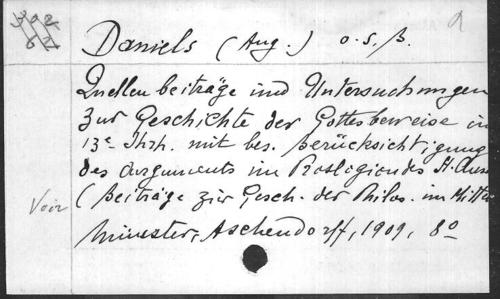 302
62
Daniels (Aug.) o.S.B.
Quellenbeiträge und Untersuchungen
zur Geschichte der Gottesbeweise in
13e Jhrh. mit bes. Berücksichtigung
des Arguments im Proslogion des H. Ans
(Beiträge zur Gesch. der Philos. im Mittel
Voir
Münster, Aschendorff, 1909, 8o